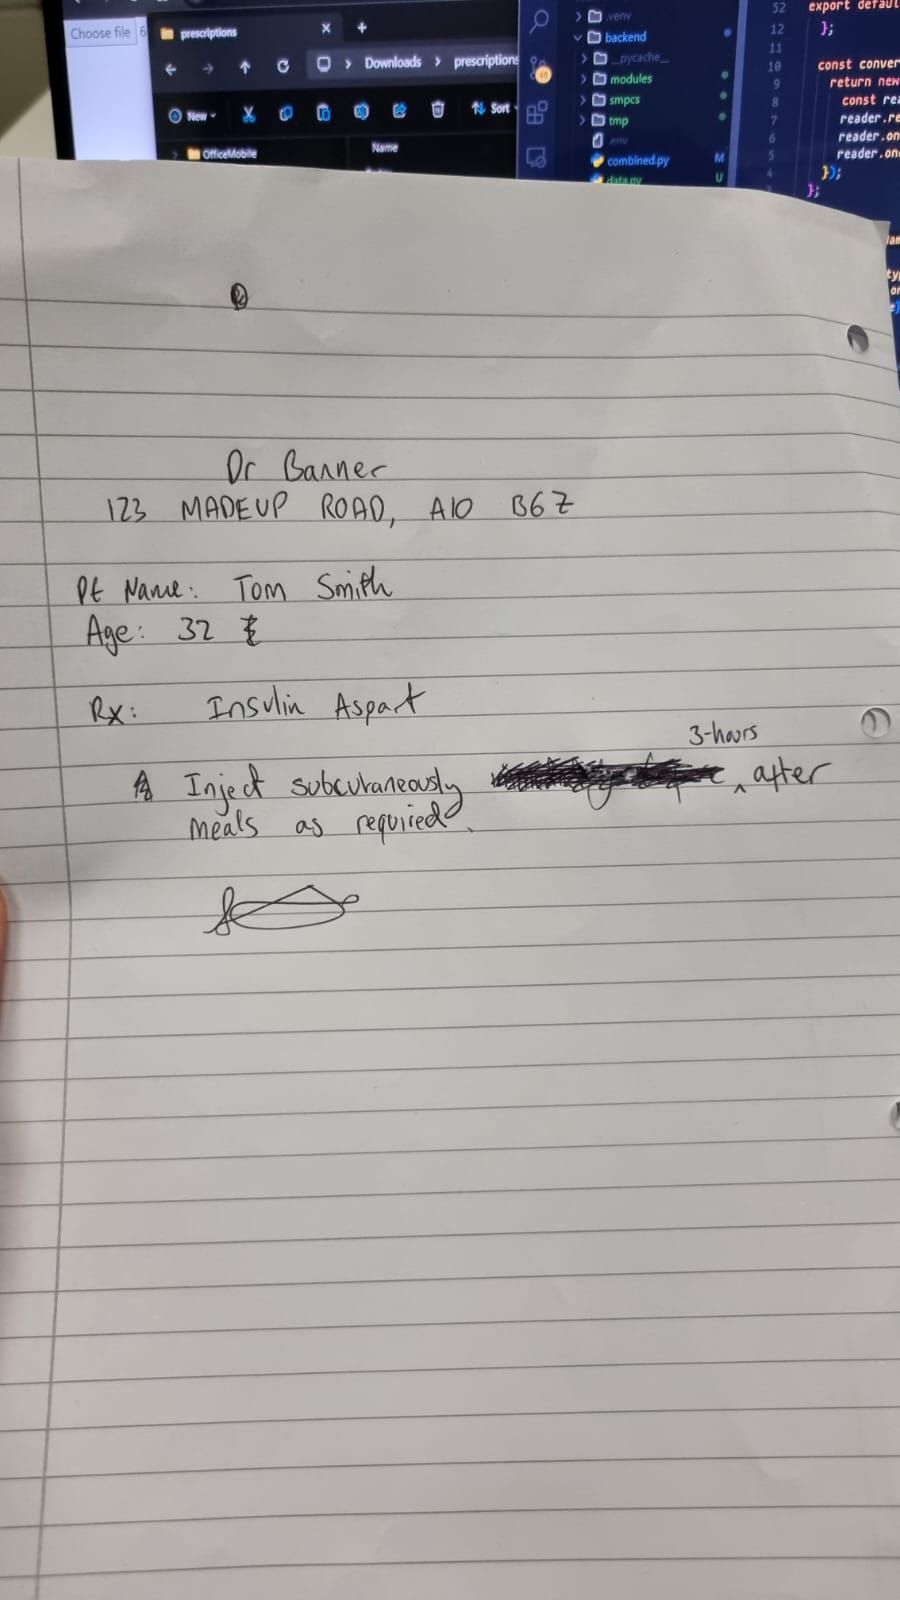 Choose file 6
prescriptions
Downloads > prescriptions
New
Sort
OfficeMobile
Name
.venv
backend
__pycache__
modules
smpcs
tmp
.env
combined.py M
data.py U
52 export defaul
12 };
11
10 const conver
9 return new
8 const rea
7 reader.re
6 reader.on
5 reader.one
4 });
};
Dr Banner
123 MADEUP ROAD, A10 B6Z
Pt Name: Tom Smith
Age: 32
Rx: Insulin Aspart
3-hours
Inject subcutaneously ^ after
meals as required.